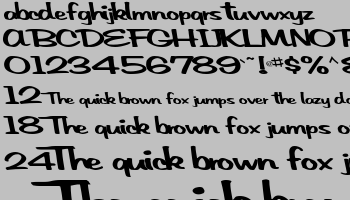 abcdefghijklmnopqrstuvwxyz
ABCDEFGHIJKLMNOP
0123456789`~!#$%^&
12 The quick brown fox jumps over the lazy do
18 The quick brown fox jumps o
24 The quick brown fox j
The quick brow